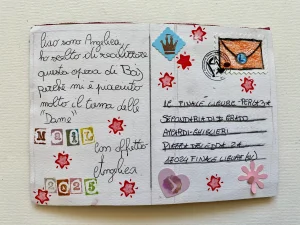 Ciao sono Angelica,
ho scelto di realizzare
questa opera di Baj
perché mi è piaciuto
molto il tema delle
"Dame"
MAIL
con affetto
Angelica
2025
IC FINALE LIGURE PERTICA
SECONDARIA DI I° GRADO
AYCARDI-GHIGLIERI
VIA
17024 FINALE LIGURE (SV)